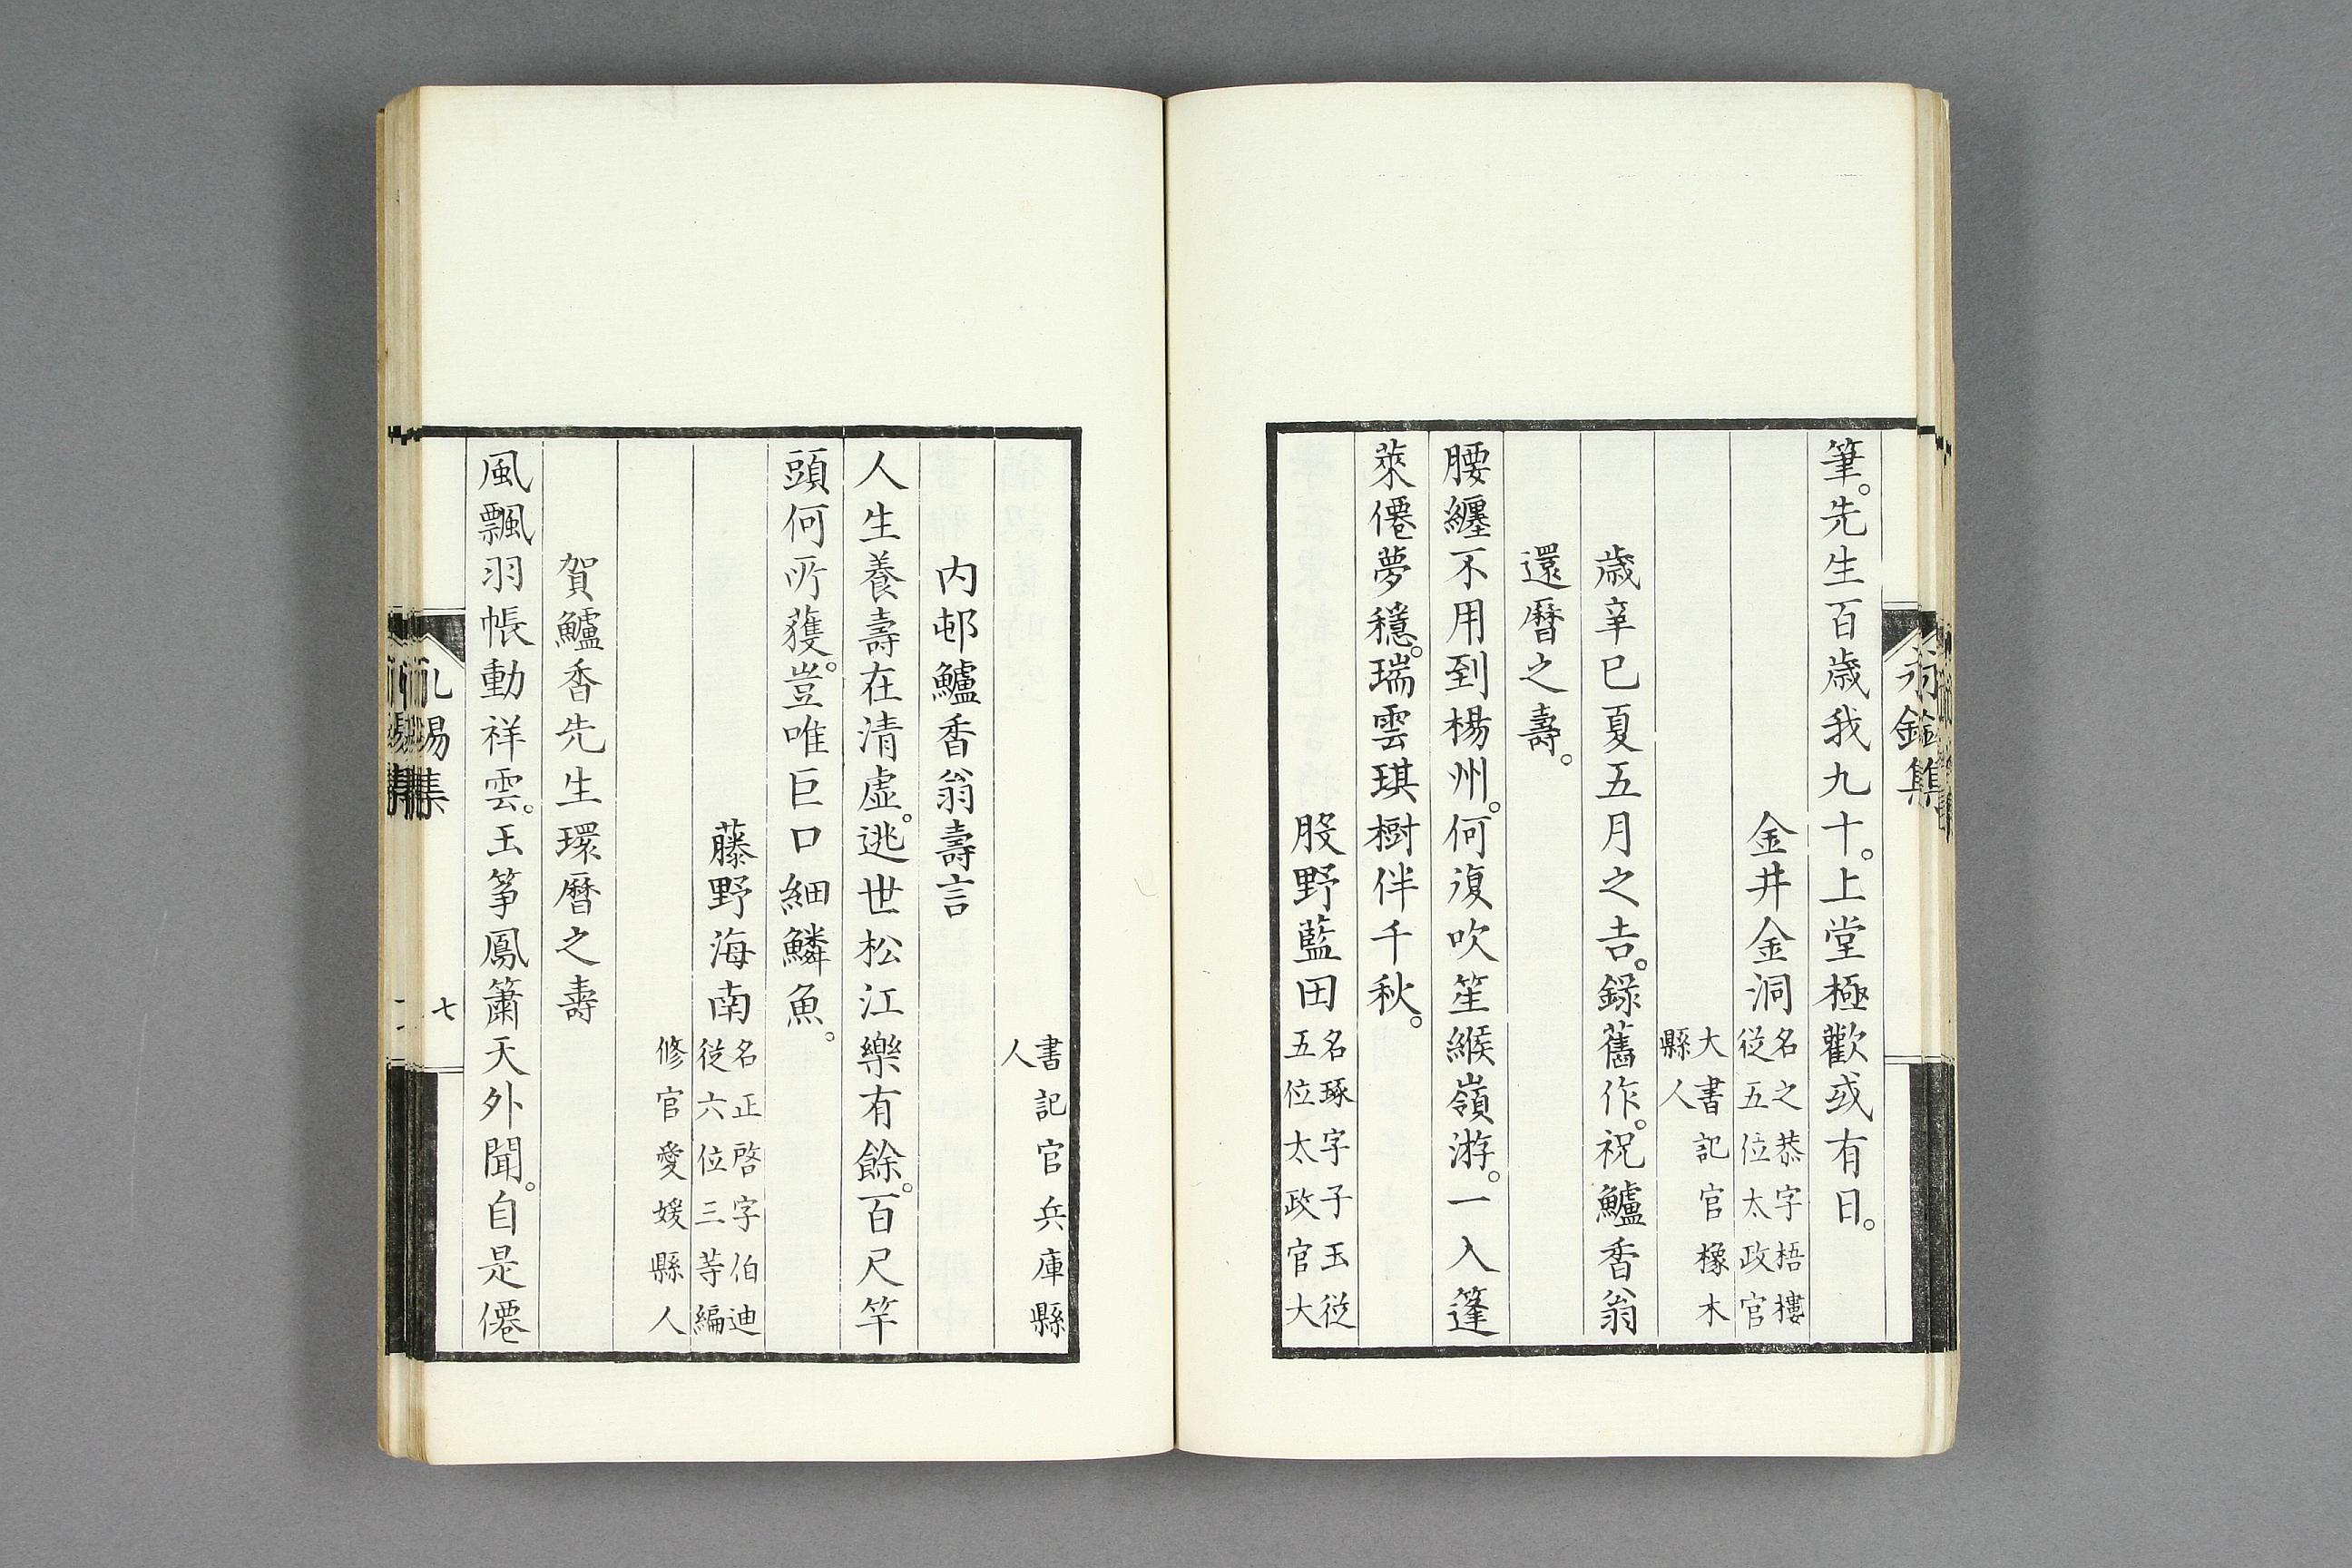 筆。先生百歳我九十。上堂極歡或有日。
金井金洞名之恭字梧樓
從五位太政官
大書記官橡木
縣人
歳辛巳夏五月之吉。錄舊作。祝鱸香翁
還曆之壽。
腰纏不用到楊州。何復吹笙緱嶺游。一入篷
萊僊夢穩。瑞雲琪樹伴千秋。
股野藍田名琢字子玉從
五位太政官大
書記官兵庫縣
人
内邨鱸香翁壽言
人生養壽在清虛。逃世松江樂有餘。百尺竿
頭何所獲。豈唯巨口細鱗魚。
藤野海南名正啓字伯迪
從六位三等編
修官愛媛縣人
賀鱸香先生環曆之壽
風飄羽帳動祥雲。玉筝鳳簫天外聞。自是僊
七